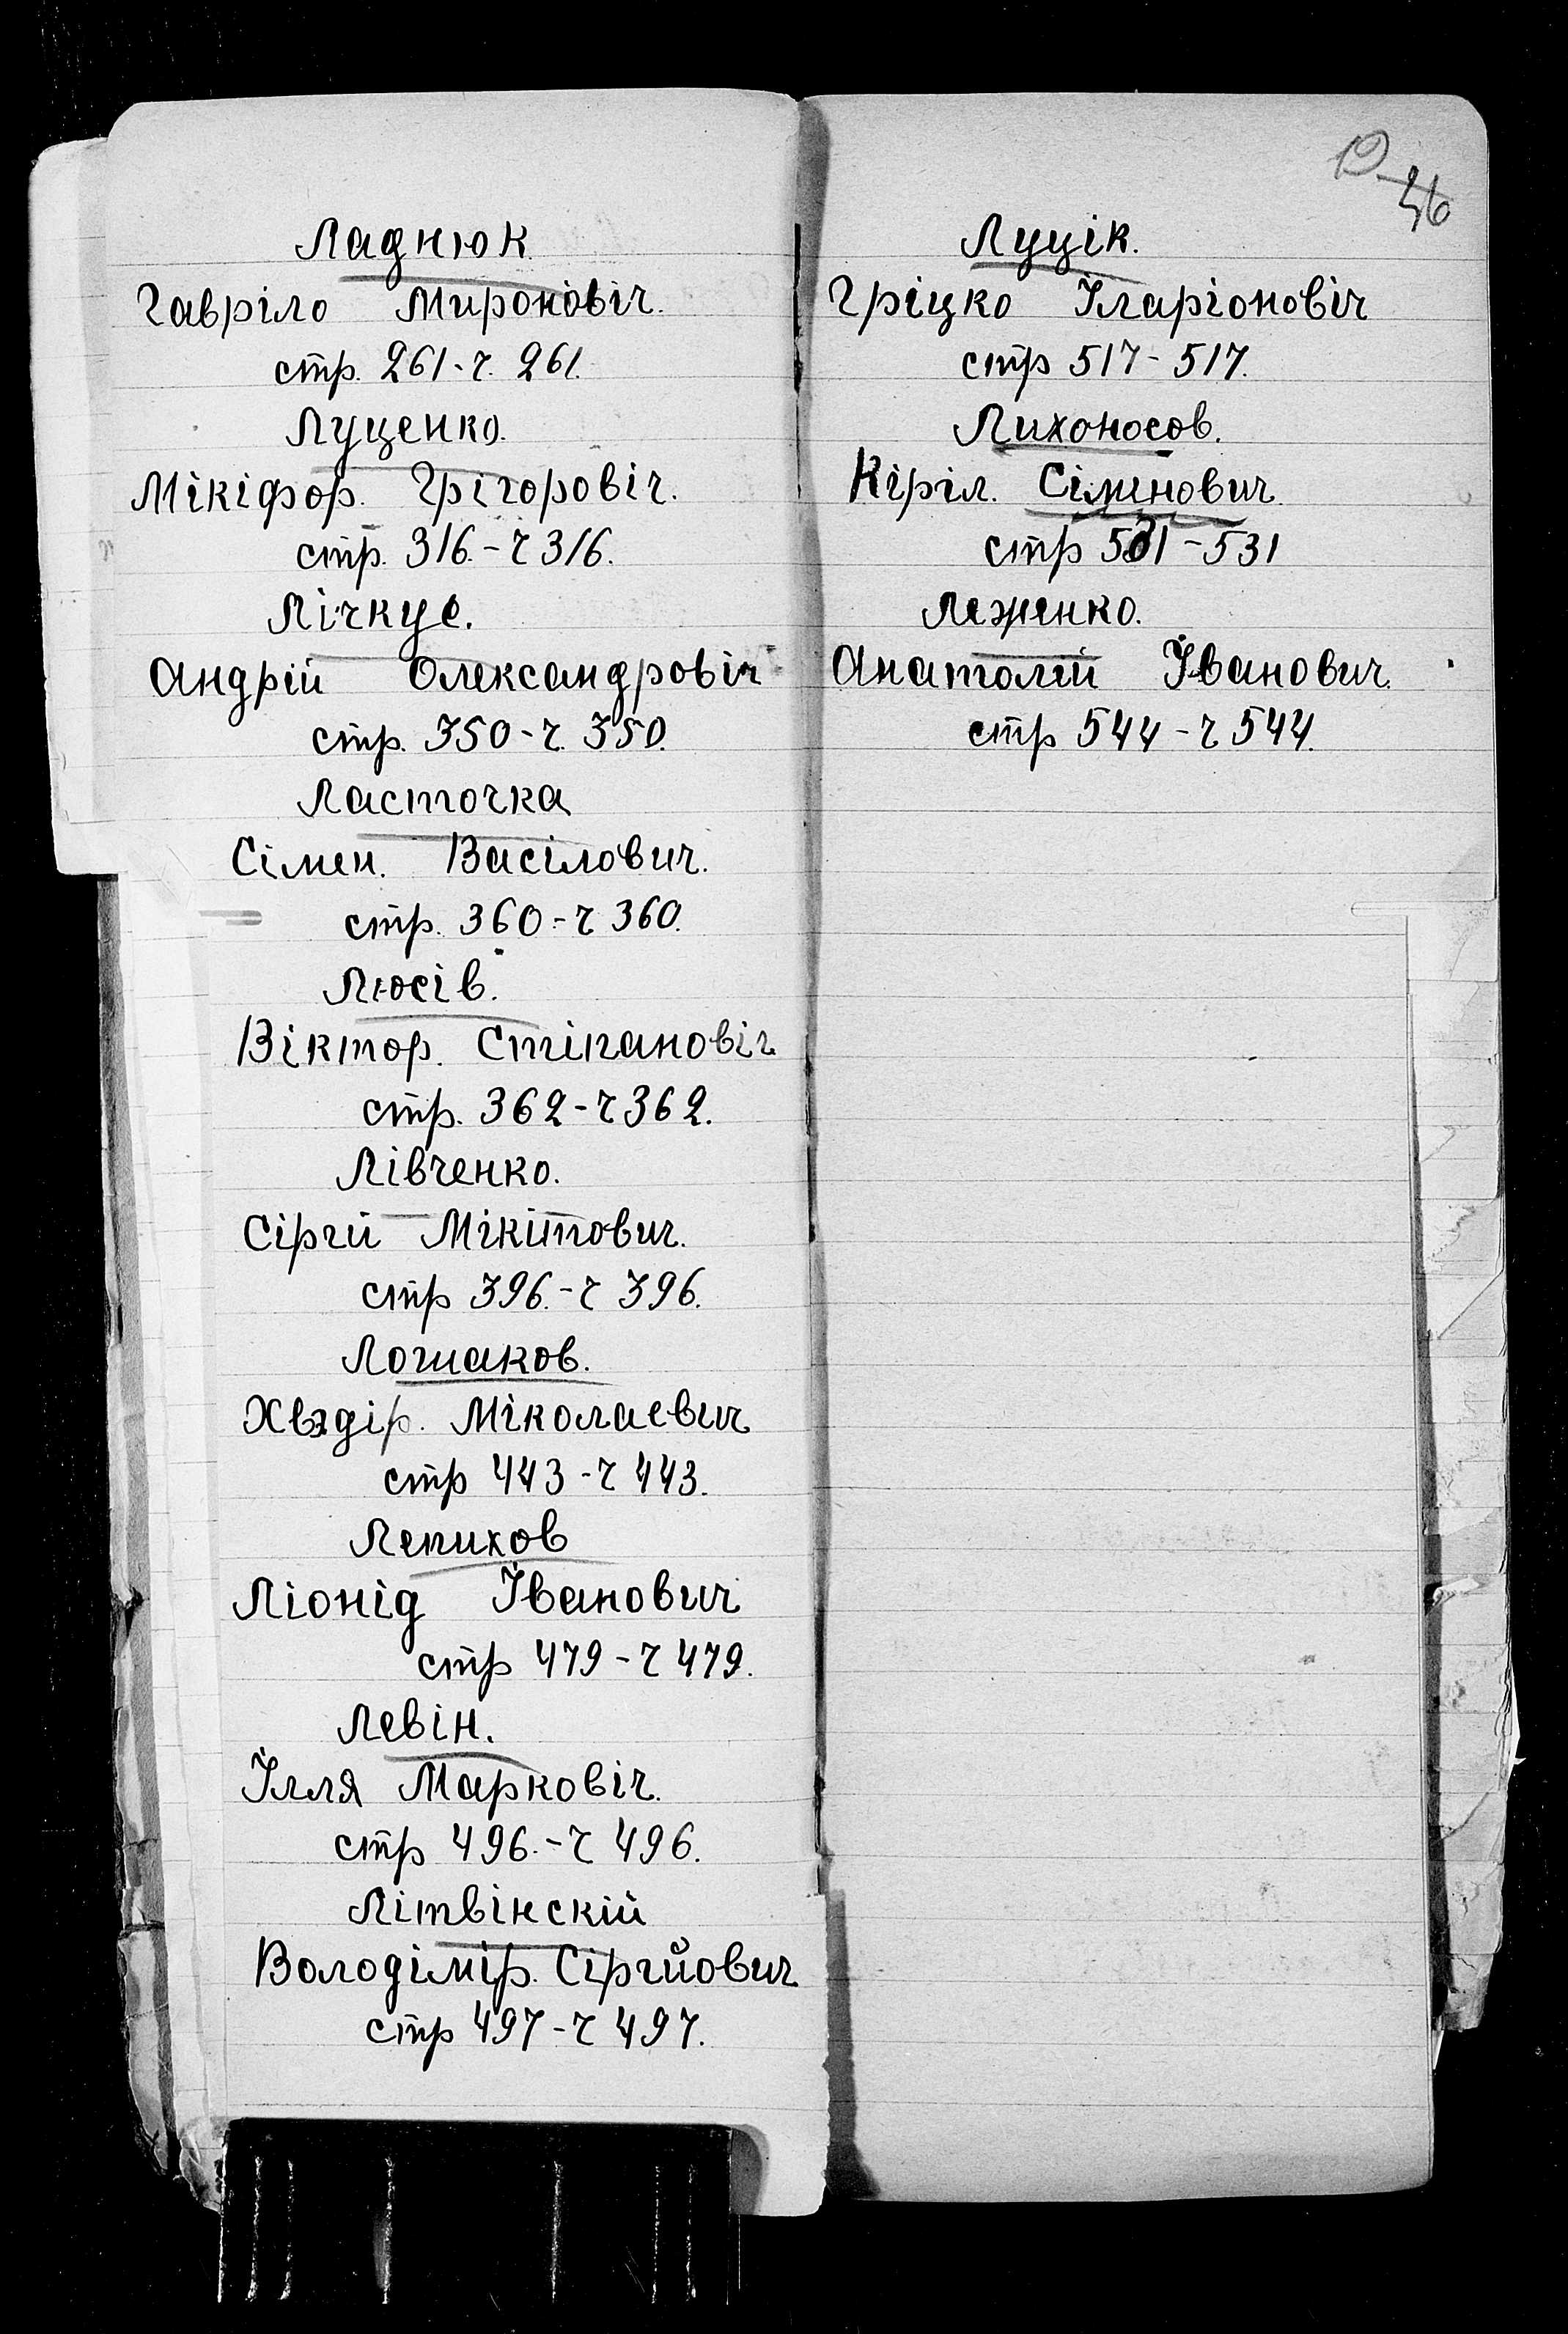 Ладнюк
Гавріло Миронівіч.
стр. 261-ч. 261.
Луценко.
Мікіфор. Грігоровіч.
стр. 316.-ч 316.
Лічкус.
Андрій Олександровіч
стр. 350-ч. 350.
Ласточка
Сімен. Васілович.
стр. 360-ч 360.
Люсів.
Віктор. Стіпановіч
стр. 362-ч 362.
Лівченко.
Сіргій Мікітович.
стр 396.-ч 396.
Лошаков.
Хведір. Міколаевич
стр 443-ч 443.
Лепихов
Ліонід Іванович
стр 479-ч 479.
Левін.
Ілля Марковіч.
стр 496.-ч 496.
Літвінскій
Володімір. Сіргійович
стр 497-ч 497.
36
Луцік.
Гріцко Іларіоновіч
стр 517-517.
Лихоносов.
Кіріл. Сіменович
стр 531-531
Леженко.
Анатолій Іванович.
стр 544-ч 544.